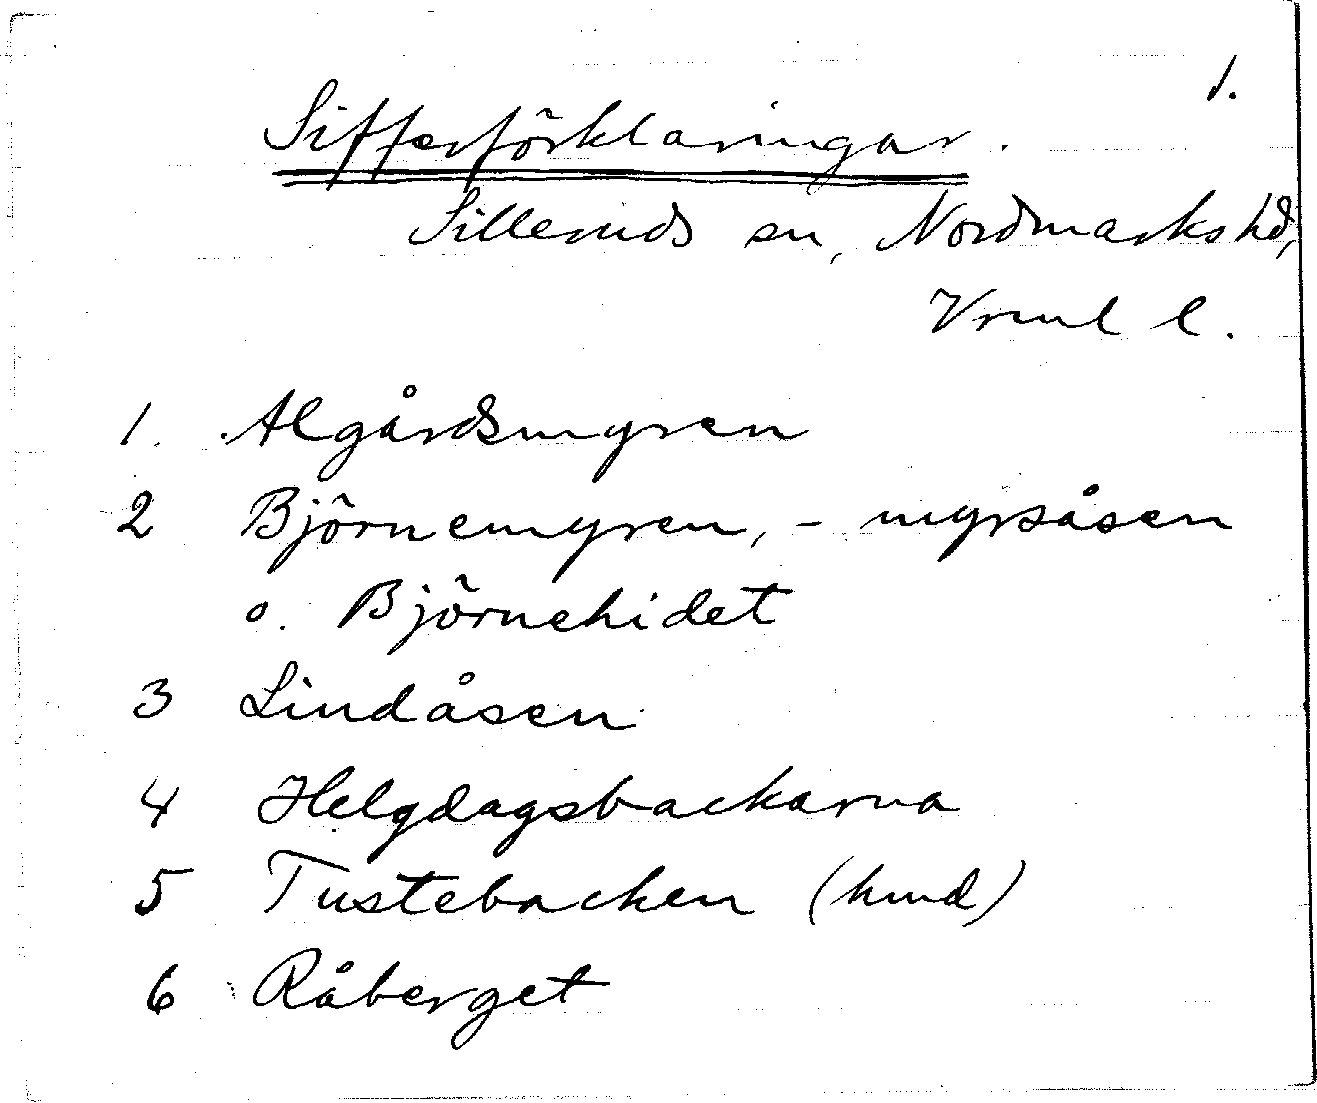 1.
Sifferförklaringar.
Silleruds sn, Nordmarks hd,
Vrml l.
1. Algårdsmyren
2 Björnemyren, - myrsåsen
o. Björnehidet
3 Lindåsen
4 Helgdagsbackarna
5 Tustebacken (hund)
6 Råberget